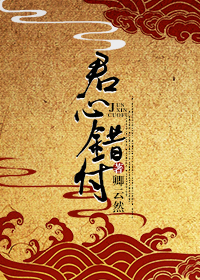 君心错付
JUN
XIN
CUOFU
卿云然
著